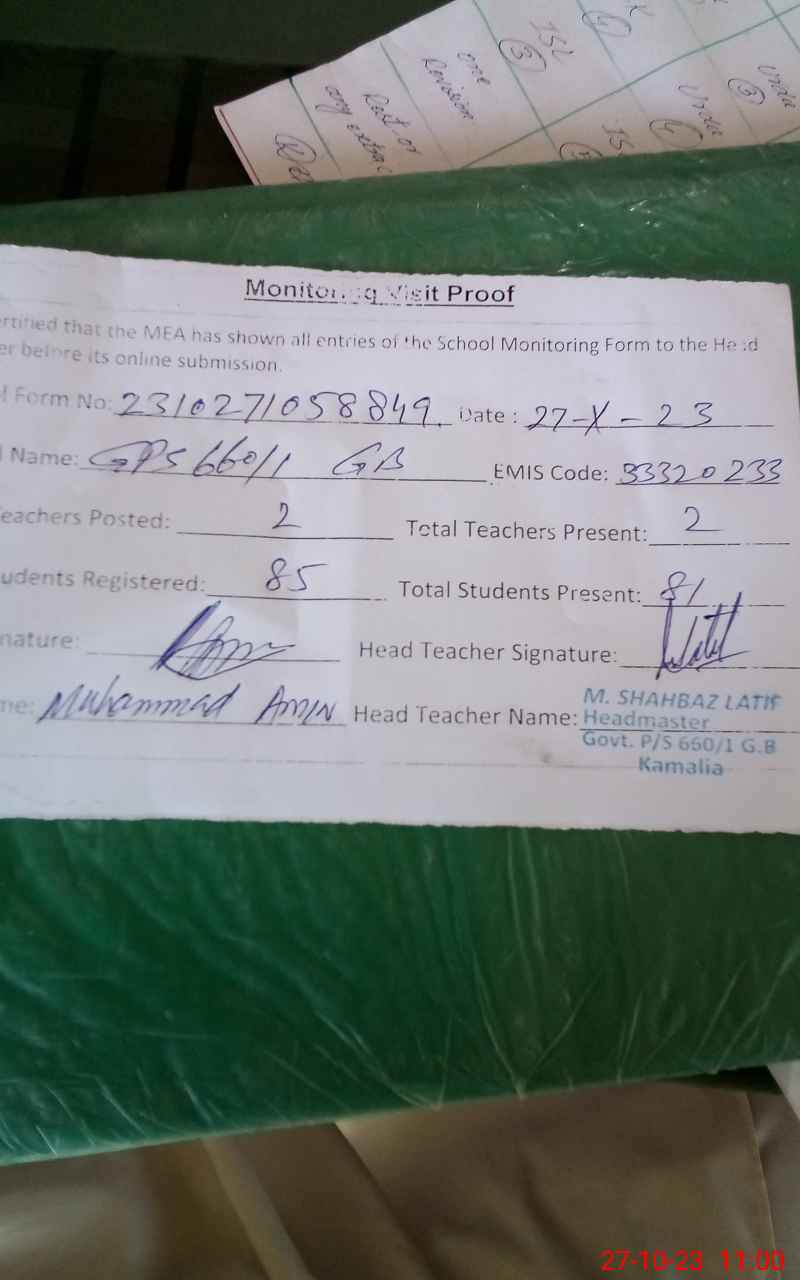 ISL
(3)
one
Revision
Rest or
any extra c
(4)
Urdu
(3)
Urdu
(4)
IS
Monitoring Visit Proof
ertified that the MEA has shown all entries of the School Monitoring Form to the Head
er before its online submission.
l Form No: 2310271058849. Date : 27-X-23
l Name: GPS 660/1 GB EMIS Code: 33320233
eachers Posted: 2 Total Teachers Present: 2
udents Registered: 85 Total Students Present: 81
nature: Head Teacher Signature:
me: Muhammad AMIN Head Teacher Name: M. SHAHBAZ LATIF
Headmaster
Govt. P/S 660/1 G.B
Kamalia
27-10-23 11:00